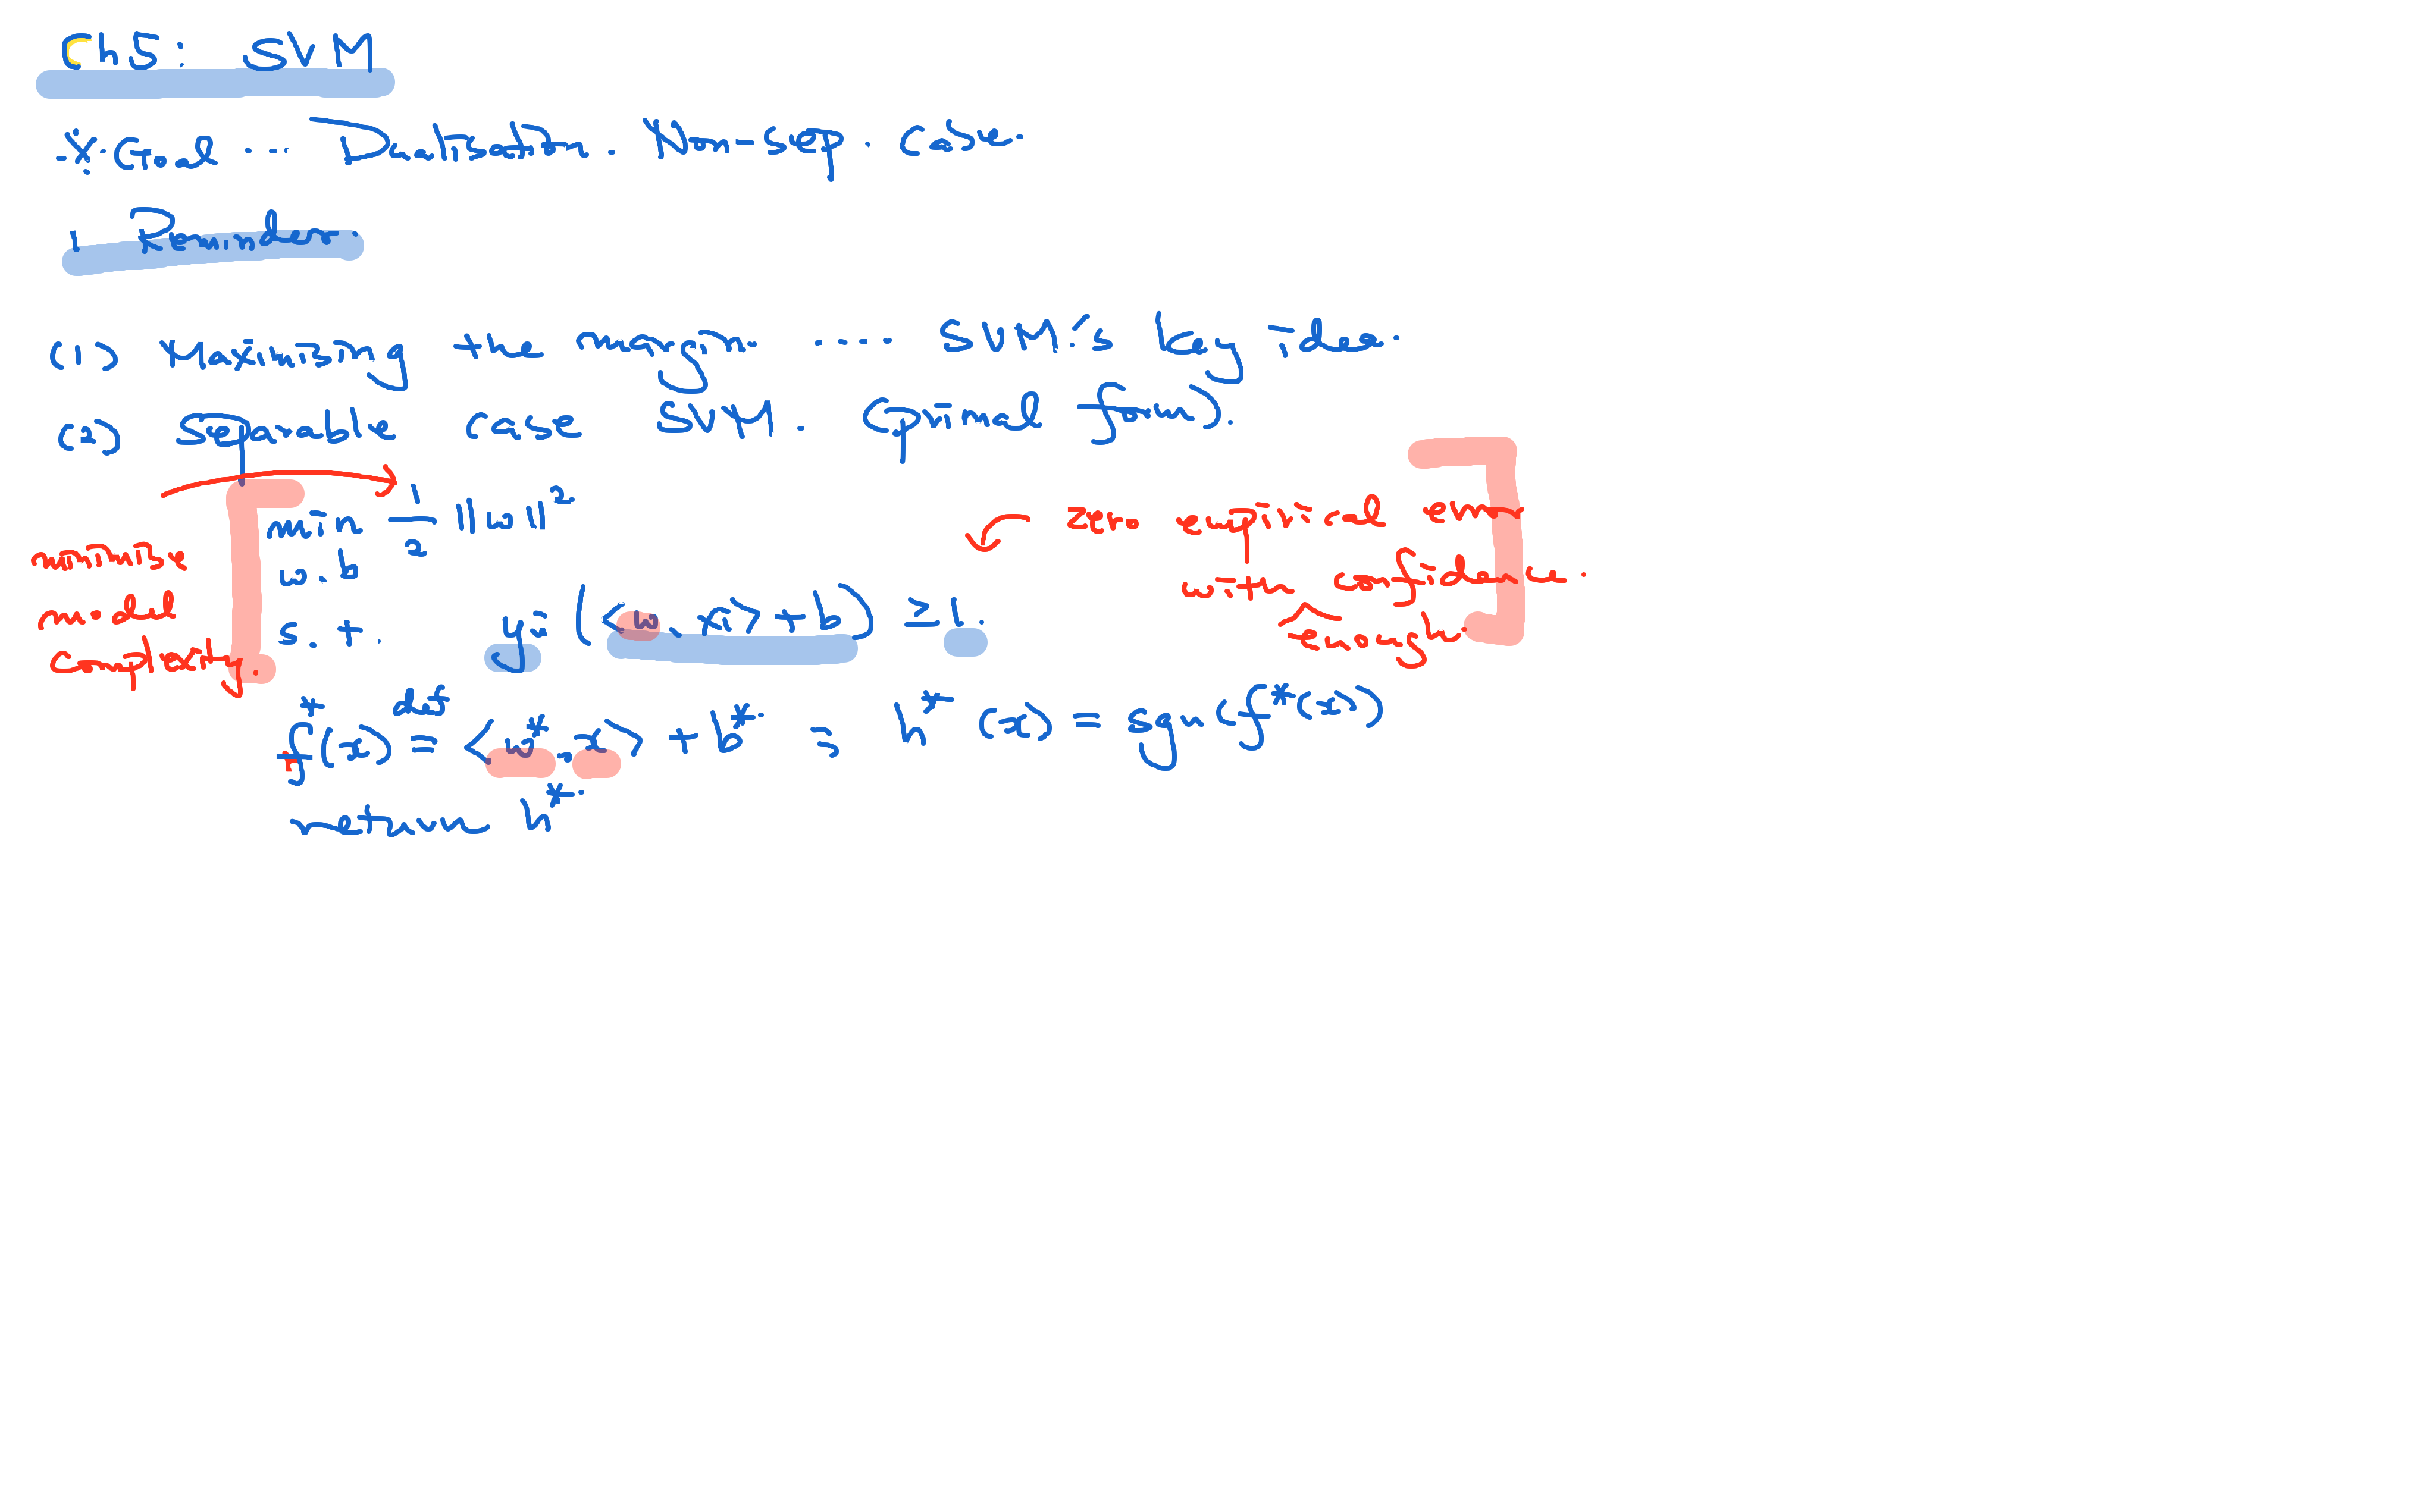 Ch5: SVM
※. Goal ... Dualisation. Non-sep. case.
1. Reminder.
(1) Maximising the margin. .... SVM's key idea.
(2) Separable case SVM. Optimal form).
min 1/2 ||w||²
w.b
s.t. yi (<w, xi> + b) ≥ 1.
minimise
model
complexity.
zero empirical error
with confidence.
enough.
f*(x) def= <w*, x> + b*. ; h*(x) = sgn(f*(x))
return h*.